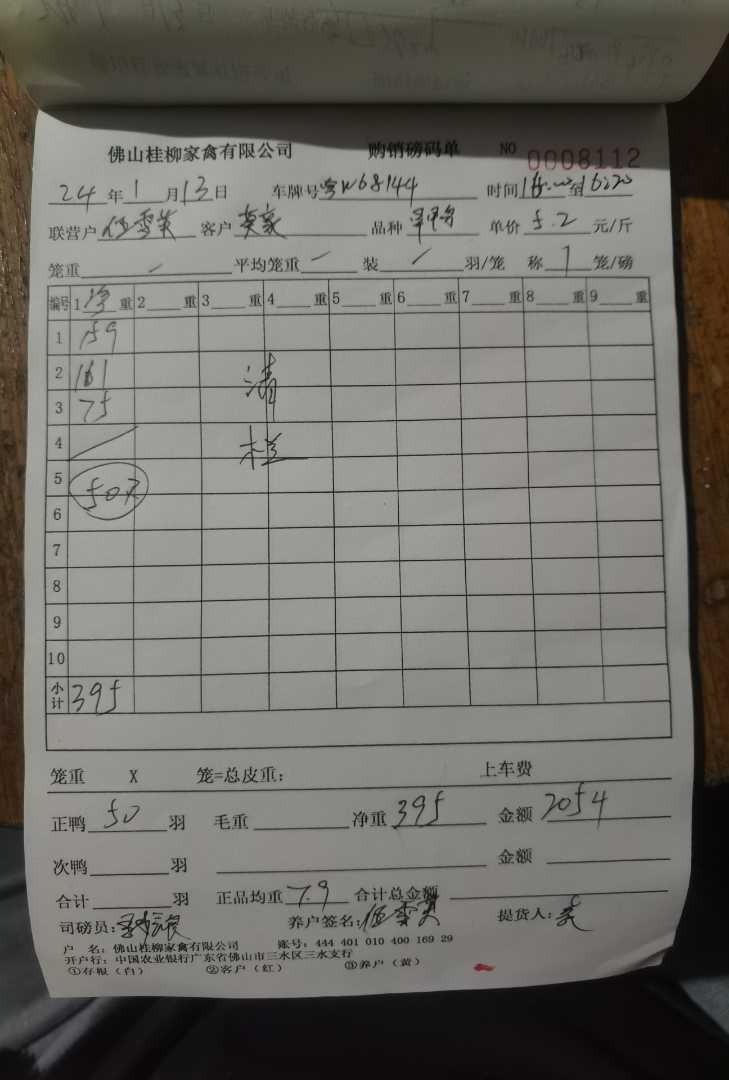 佛山桂柳家禽有限公司 购销磅码单 NO 0008112
24年1月13日 车牌号粤W68144 时间16:00至16:20
联营户伍雪英 客户莫家 品种 单价5.2元/斤
笼重/ 平均笼重/ 装/羽/笼 称1笼/磅
编号 1净重 2重 3重 4重 5重 6重 7重 8重 9重
1 159
2 161 清
3 75
4 / 栏
5 50只
6
7
8
9
10
小计 395
笼重 X 笼=总皮重: 上车费
正鸭50羽 毛重 净重395 金额2054
次鸭 羽 金额
合计 羽 正品均重7.9 合计总金额
司磅员: 养户签名:伍雪英 提货人:
户 名: 佛山桂柳家禽有限公司 账号: 444 401 010 400 169 29
开户行: 中国农业银行广东省佛山市三水区三水支行
①存根(白) ②客户(红) ③养户(黄)